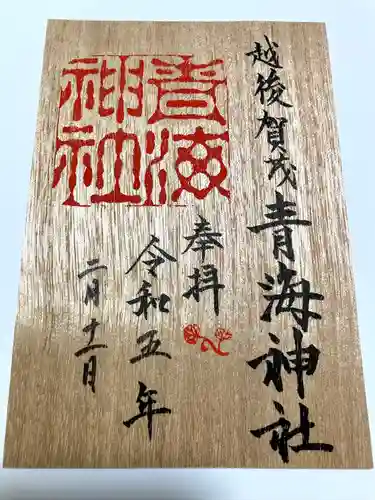 越後賀茂
青海神社
奉拝
令和五年
二月十一日
青海
神社